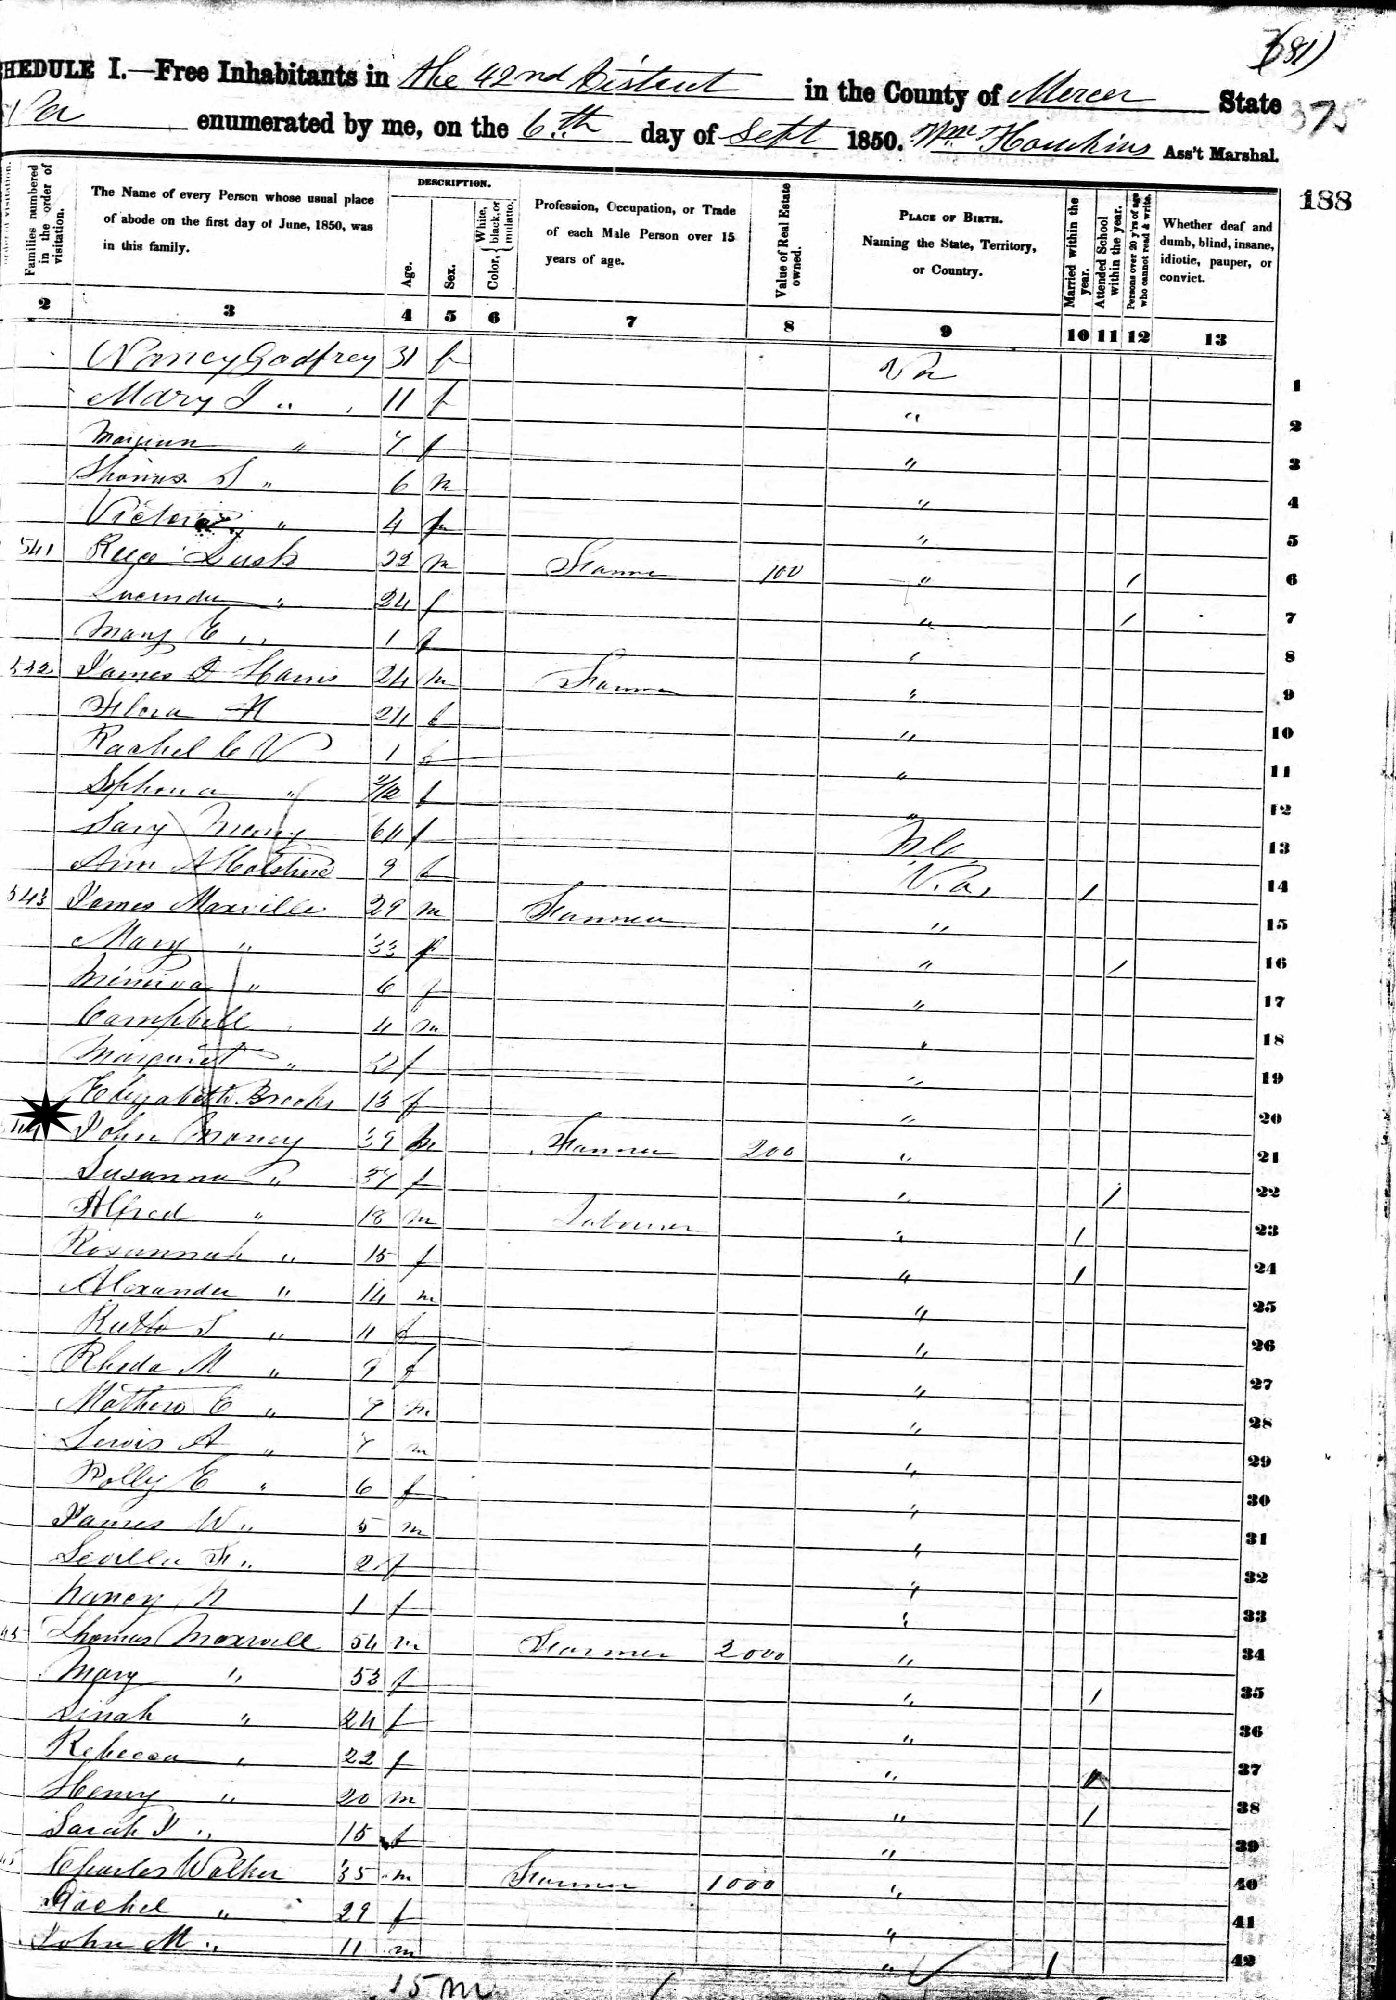 (381)
HEDULE I.—Free Inhabitants in the 42nd District in the County of Mercer State
Va enumerated by me, on the 6th day of Sept 1850. Wm Hawkins Ass't Marshal.
375
188
Families numbered in the order of visitation.
The Name of every Person whose usual place of abode on the first day of June, 1850, was in this family.
DESCRIPTION.
Age.
Sex.
Color, { White, black, or mulatto.
Profession, Occupation, or Trade of each Male Person over 15 years of age.
Value of Real Estate owned.
PLACE OF BIRTH. Naming the State, Territory, or Country.
Married within the year.
Attended School within the year.
Persons over 20 y'rs of age who cannot read & write.
Whether deaf and dumb, blind, insane, idiotic, pauper, or convict.
2 3 4 5 6 7 8 9 10 11 12 13
Nancy Godfrey 31 f Va 1
Mary J " 11 f " 2
" 7 f " 3
Thomas " 6 m " 4
Victoria " 4 f " 5
541 Lusk m Farmer 100 " 1 6
Lucinda " 24 f " 1 7
Mary E " 1 f " 8
542 James Harris 24 m Farmer " 9
Flora 24 f " 10
Rachel C V 1 f " 11
" /12 f " 12
64 f N.C. 13
Ann 9 f Va. 1 14
543 James Maxville 29 m Farmer " 15
Mary " 33 f " 1 16
Minerva " 6 f " 17
Campbell 4 m " 18
Margaret " f " 19
Elizabeth 13 f " 20
John 39 m Farmer 200 " 21
Susanna " 37 f " 1 22
Alfred " 18 m Labourer " 1 23
Rosannah " 15 f " 1 24
Alexander " 14 m " 25
Ruth " 11 f " 26
Rhoda M " 9 f " 27
Mathew E " 7 m " 28
Lewis A " 7 m " 29
Polly E " 6 f " 30
James W " 5 m " 31
F " 2 f " 32
Nancy 1 f " 33
Thomas Maxwell 54 m Farmer 2000 " 34
Mary " 53 f " 1 35
" 24 f " 36
Rebecca " 22 f " 1 37
Henry " 20 m " 1 38
Sarah J " 15 f " 39
Charles Walker 35 m Farmer 1000 " 40
Rachel " 29 f " 41
John M " 11 m " 1 42
15 m